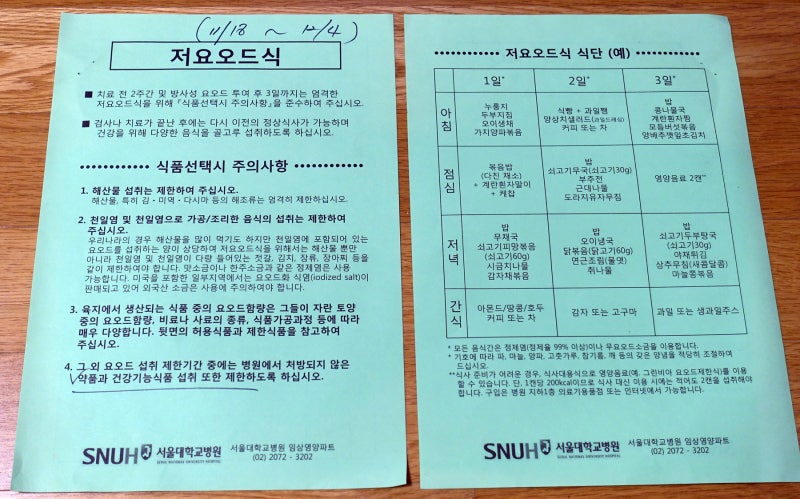 (11/18 ~ 12/4)
저요오드식
■ 치료 전 2주간 및 방사성 요오드 투여 후 3일까지는 엄격한
저요오드식을 위해 『식품선택시 주의사항』을 준수하여 주십시오.
■ 검사나 치료가 끝난 후에는 다시 이전의 정상식사가 가능하며
건강을 위해 다양한 음식을 골고루 섭취하도록 하십시오.
식품선택시 주의사항
1. 해산물 섭취는 제한하여 주십시오.
해산물, 특히 김·미역·다시마 등의 해조류는 엄격히 제한하십시오.
2. 천일염 및 천일염으로 가공/조리한 음식의 섭취는 제한하여
주십시오.
우리나라의 경우 해산물을 많이 먹기도 하지만 천일염에 포함되어 있는
요오드를 섭취하는 양이 상당하여 저요오드식을 위해서는 해산물 뿐만
아니라 천일염 및 천일염이 다량 들어있는 젓갈, 김치, 장류, 장아찌 등을
같이 제한하여야 합니다. 맛소금이나 한주소금과 같은 정제염은 사용
가능합니다. 미국을 포함한 일부지역에서는 요오드화 식염(iodized salt)이
판매되고 있어 외국산 소금은 사용에 주의하여야 합니다.
3. 육지에서 생산되는 식품 중의 요오드함량은 그들이 자란 토양
중의 요오드함량, 비료나 사료의 종류, 식품가공과정 등에 따라
매우 다양합니다. 뒷면의 허용식품과 제한식품을 참고하여
주십시오.
4. 그 외 요오드 섭취 제한기간 중에는 병원에서 처방되지 않은
약품과 건강기능식품 섭취 또한 제한하도록 하십시오.
SNUH 서울대학교병원
SEOUL NATIONAL UNIVERSITY HOSPITAL
서울대학교병원 임상영양파트
(02) 2072 - 3202
저요오드식 식단 (예)
1일* 2일* 3일*
아침
누룽지
두부지짐
오이생채
가지양파볶음
식빵 + 과일잼
양상치샐러드(과일드레싱)
커피 또는 차
밥
콩나물국
계란흰자찜
모듬버섯볶음
양배추깻잎초김치
점심
볶음밥
(다진 채소)
+ 계란흰자말이
+ 케찹
밥
쇠고기무국(쇠고기30g)
부추전
근대나물
도라지유자무침
영양음료 2캔**
저녁
밥
무채국
쇠고기피망볶음
(쇠고기60g)
시금치나물
감자채볶음
밥
오이냉국
닭볶음(닭고기60g)
연근조림(물엿)
취나물
밥
쇠고기두부탕국
(쇠고기30g)
야채튀김
상추무침(새콤달콤)
마늘쫑볶음
간식
아몬드/땅콩/호두
커피 또는 차
감자 또는 고구마
과일 또는 생과일주스
* 모든 음식간은 정제염(정제율 99% 이상)이나 무요오드소금을 이용합니다.
* 기호에 따라 파, 마늘, 양파, 고춧가루, 참기름, 깨 등의 갖은 양념을 적당히 조절하여
드십시오.
**식사 준비가 어려운 경우, 식사대용식으로 영양음료(예. 그린비아 요오드제한식)를 이용
할 수 있습니다. 단, 1캔당 200kcal이므로 식사 대신 이용 시에는 적어도 2캔을 섭취해야
합니다. 구입은 병원 지하1층 의료기용품점 또는 인터넷에서 가능합니다.
SNUH 서울대학교병원
SEOUL NATIONAL UNIVERSITY HOSPITAL
서울대학교병원 임상영양파트
(02) 2072 - 3202